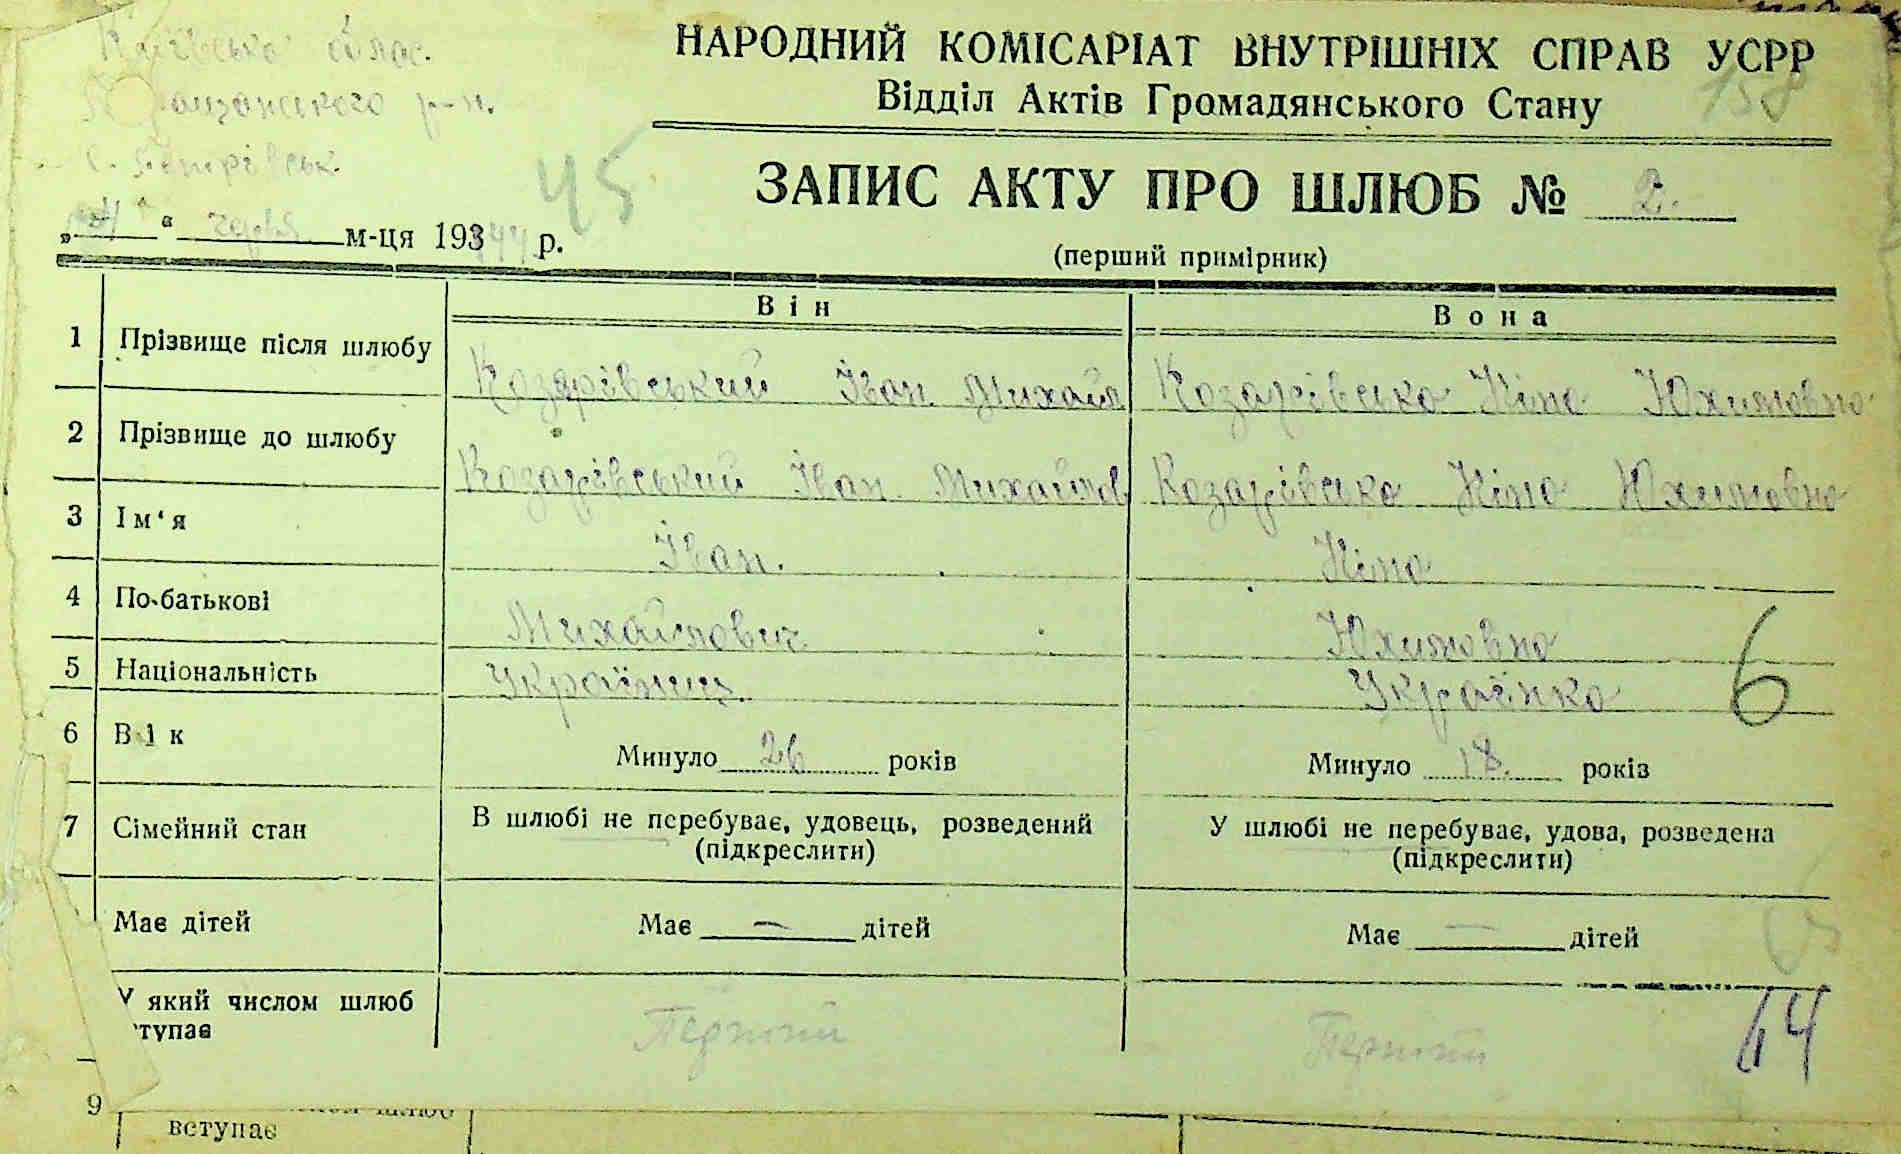 Київсько облас.
р-н.
с. Петрівськ.
НАРОДНИЙ КОМІСАРІАТ ВНУТРІШНІХ СПРАВ УСРР
Відділ Актів Громадянського Стану
158
45
ЗАПИС АКТУ ПРО ШЛЮБ № 2.
„ " червня м-ця 193 44 р.
(перший примірник)
Він
Вона
1 Прізвище після шлюбу Козарівський Іван Михайл Козарівсько Ніно Юхимовно
2 Прізвище до шлюбу Козарівський Іван Михайлов Козарівсько Ніно Юхимовно
3 Ім'я Іван. Ніно
4 По-батькові Михайлович Юхимовно
5 Національність Українец. Українко
6
6 Вік Минуло 26 років Минуло 18. років
7 Сімейний стан В шлюбі не перебуває, удовець, розведений У шлюбі не перебуває, удова, розведена
(підкреслити) (підкреслити)
Має дітей Має — дітей Має — дітей
У який числом шлюб
ступає Перший Перший
44
9
вступає